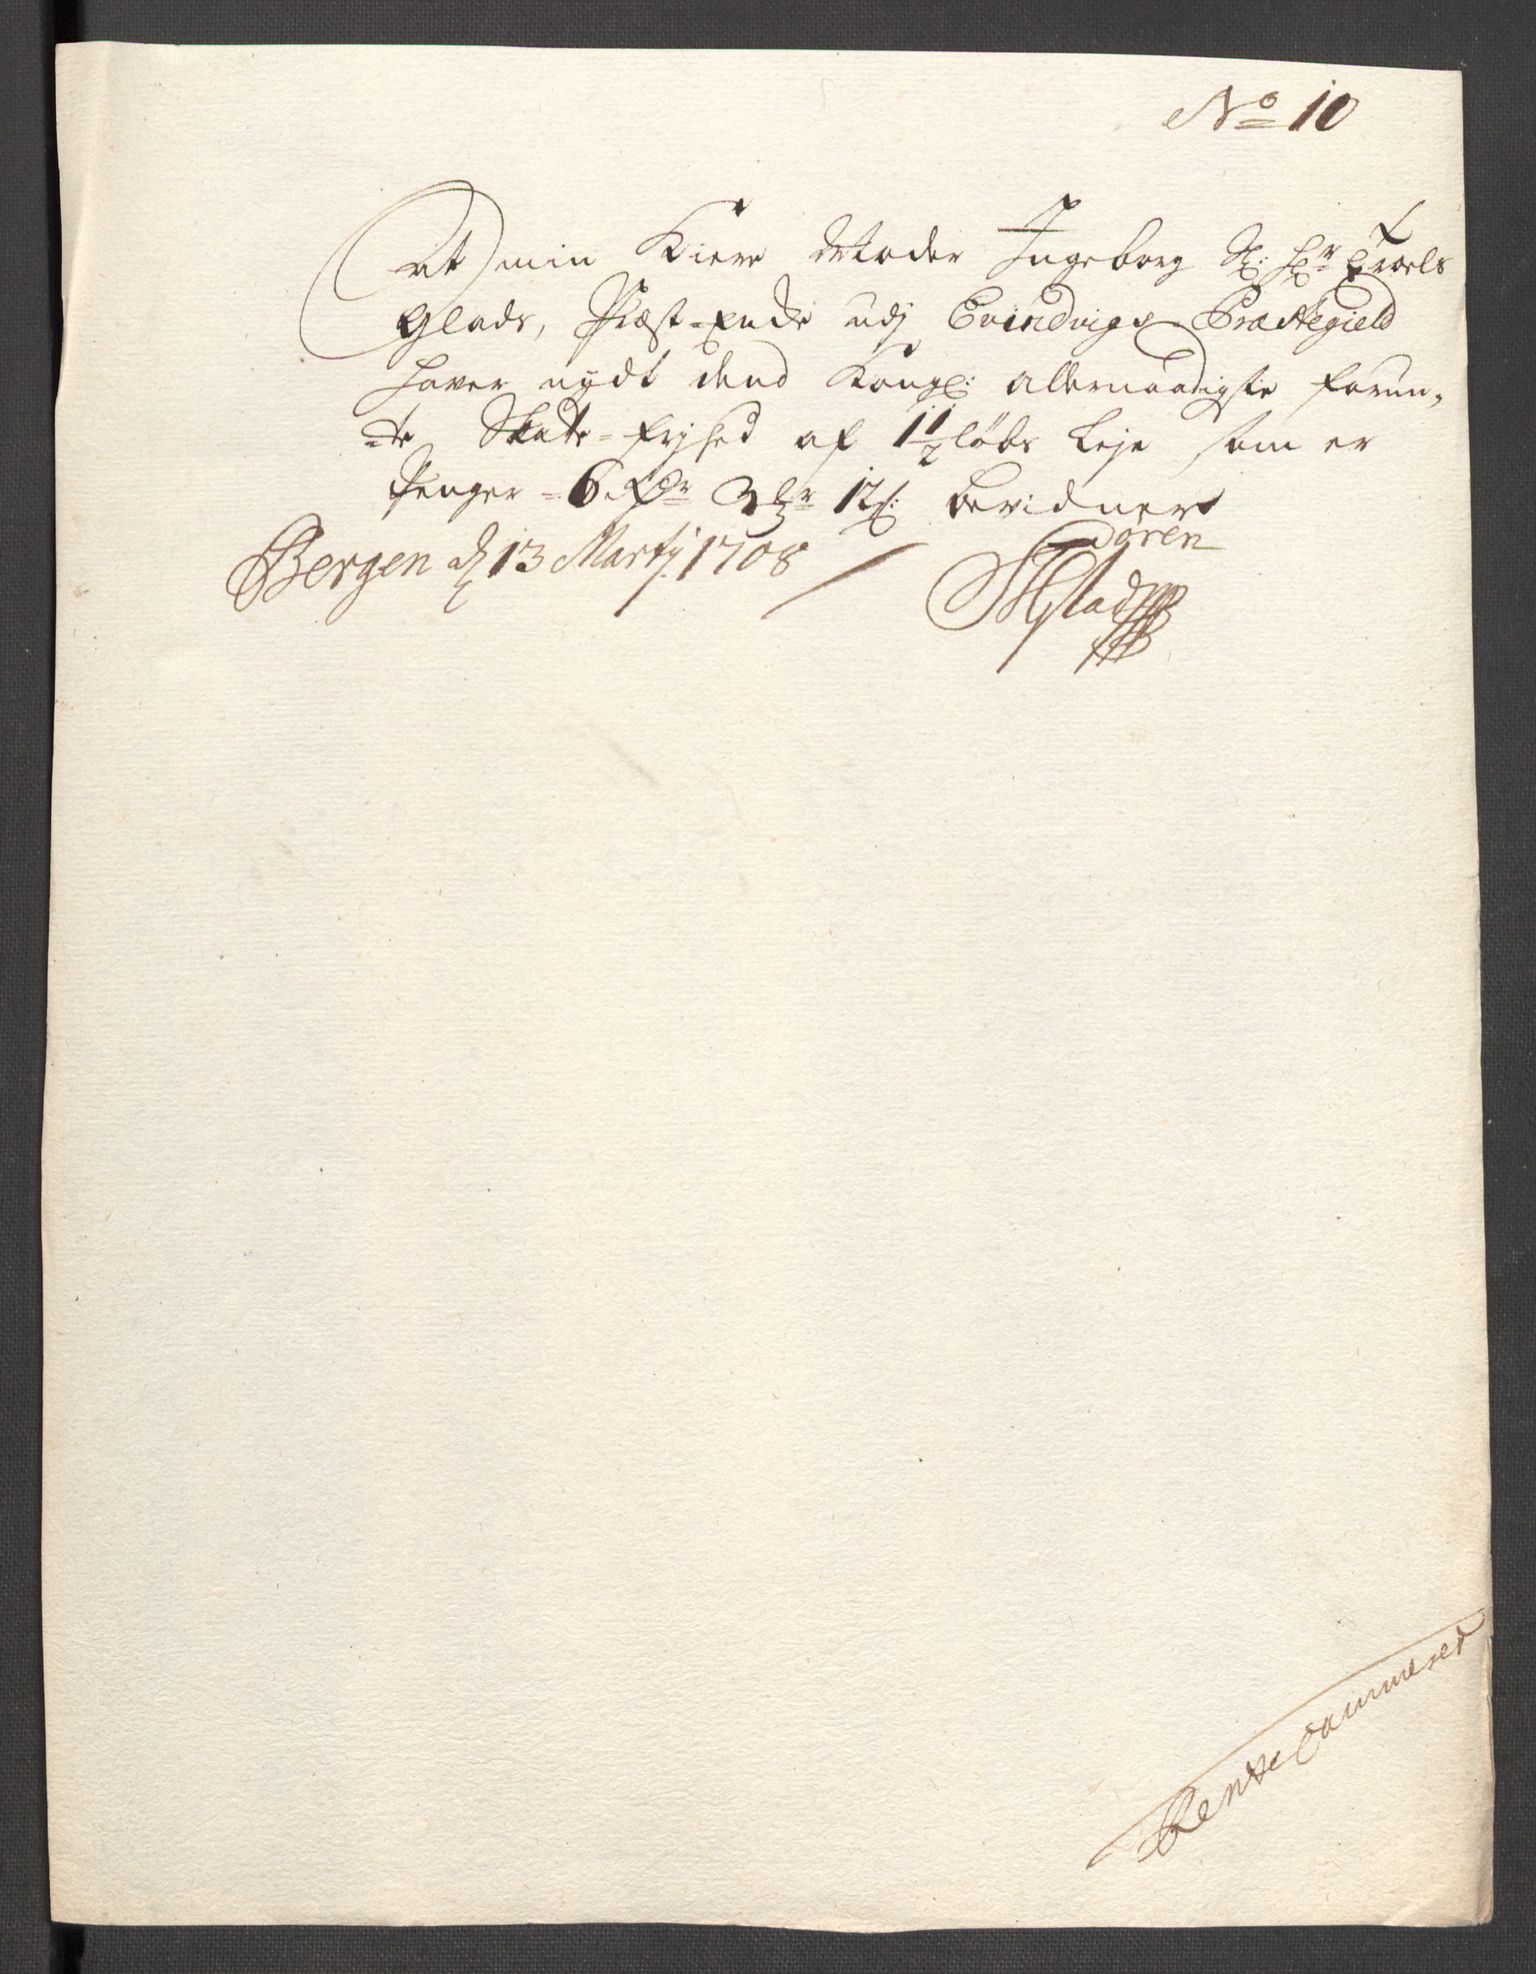 No 10
At min Kiere Moder Ingeborg Sl: Hr Troels
Glads, Præst-Enche udj Evindvigs Præstegield
haver nydt dend Kongl: allernaadigste forun,
=te Skatte-frjhed af 1 1/2 løbs Leje som er
Penger = 6 Rdr 3 ort 12 s: bevidner
Bergen d 13 Martij 1708 /
Søren
Glad
Rentecammered